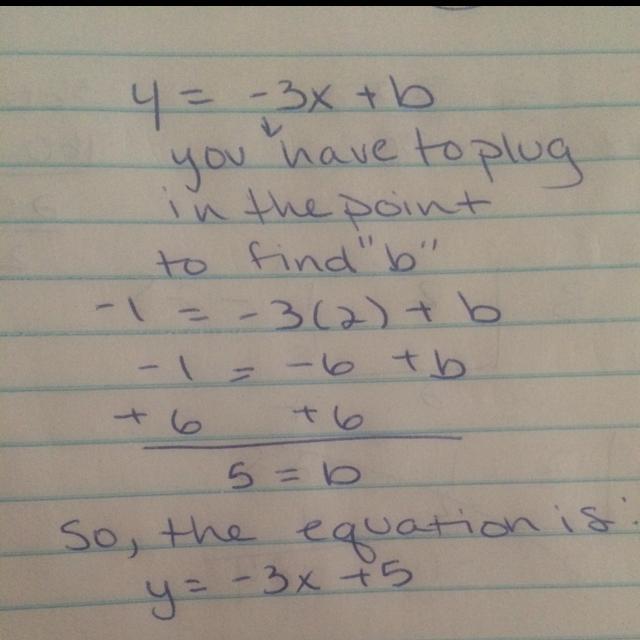 y = -3x + b
you have to plug
in the point
to find "b"
-1 = -3(2) + b
-1 = -6 + b
+6 +6
5 = b
So, the equation is:
y = -3x + 5